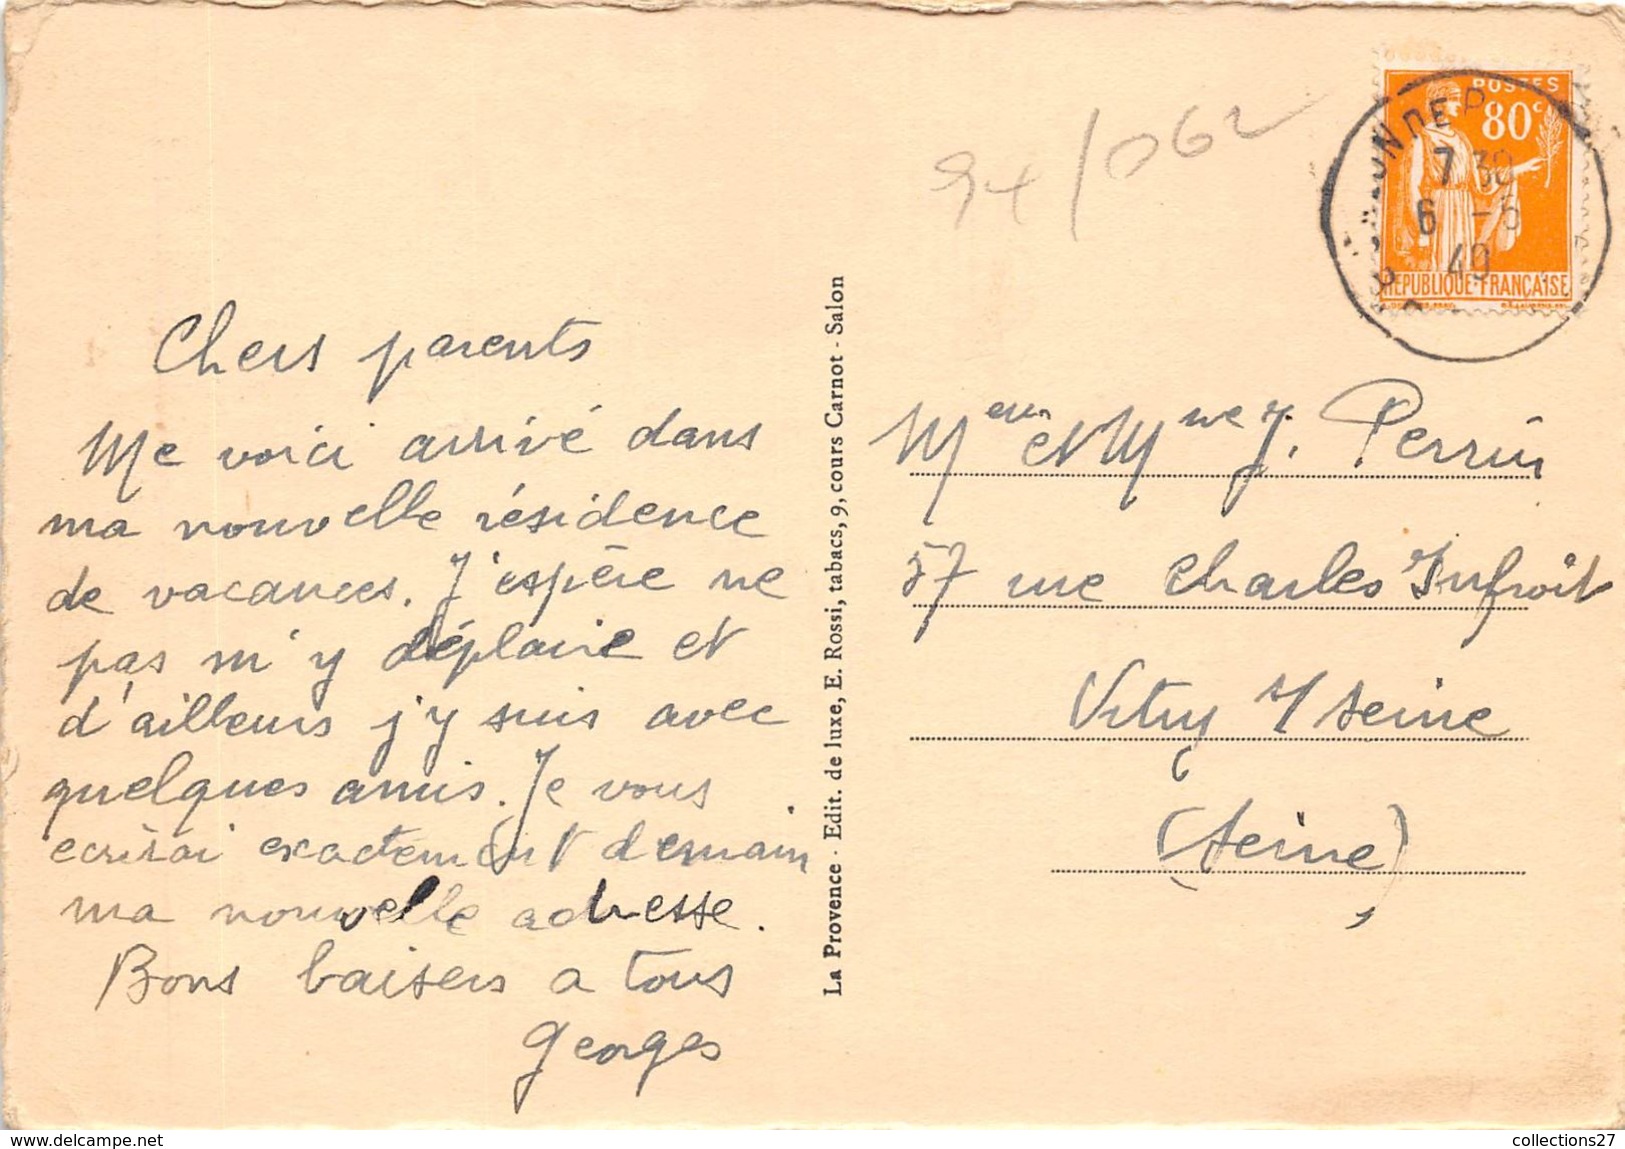 94/062
POSTES
80c
7 30
6 -6
40
REPUBLIQUE-FRANÇAISE
Chers parents
Me voici arrivé dans
ma nouvelle résidence
de vacances. J'espère ne
pas m'y déplaire et
d'ailleurs j'y suis avec
quelques amis. Je vous
ecrirai exactement demain
ma nouvelle adresse.
Bons baisers a tous
Georges
La Provence - Edit. de luxe, E. Rossi, tabacs, 9, cours Carnot - Salon
Meur et Mme J. Perrin
57 rue Charles Infroit
Vitry s/ seine
(seine)
www.delcampe.net
collections27